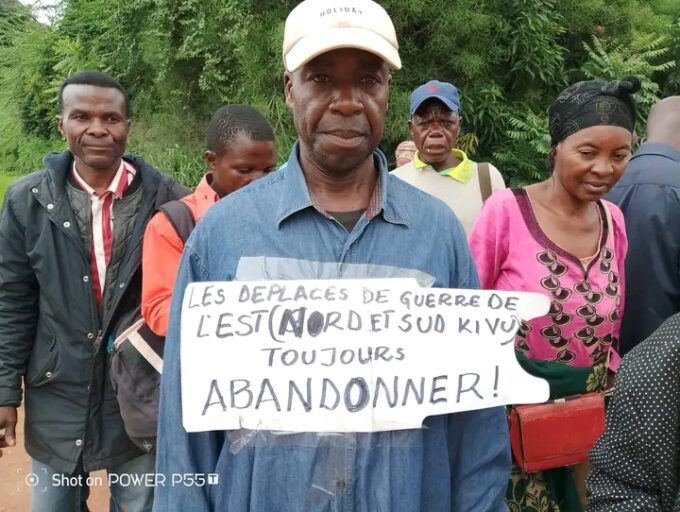 HOLIDAY
LES DEPLACES DE GUERRE DE
L'EST (NORD ET SUD KIVU)
TOUJOURS
ABANDONNER!
Shot on POWER P55T